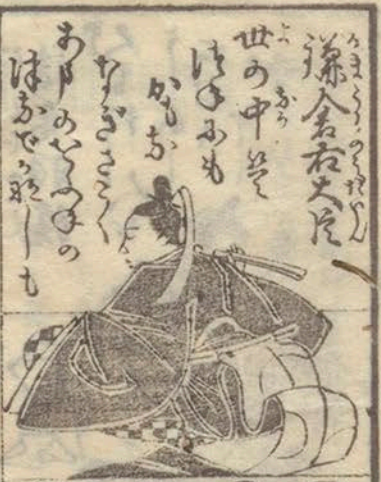 鎌倉右大臣
世の中は
つねにも
がもな
なぎさこぐ
あまのをぶねの
つなでかなしも